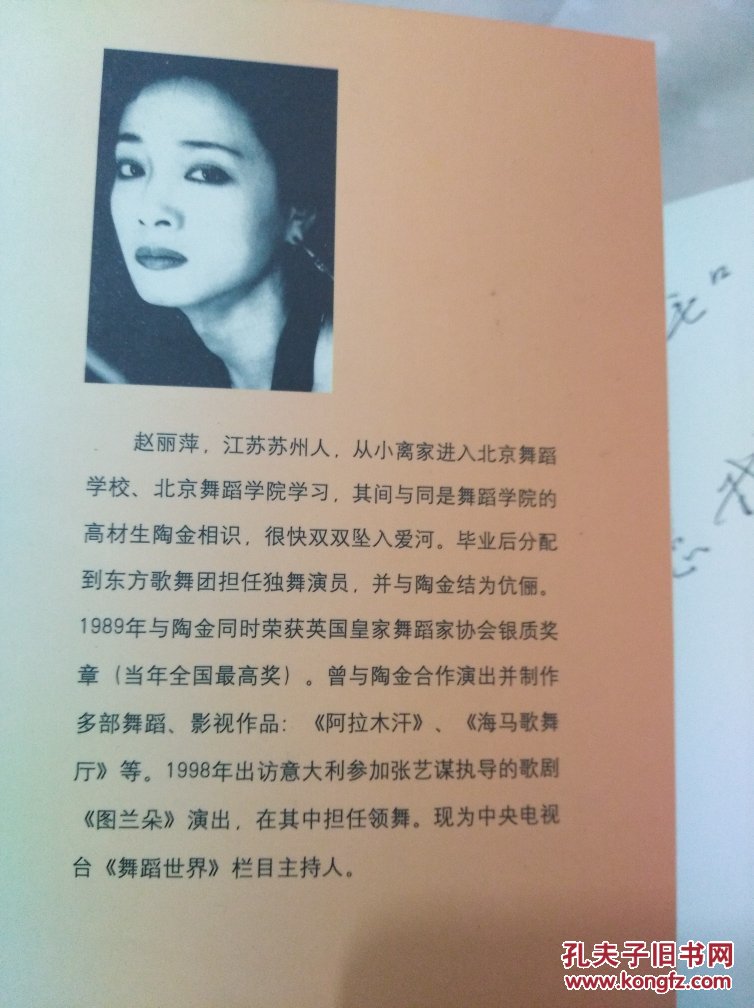 赵丽萍，江苏苏州人，从小离家进入北京舞蹈
学校、北京舞蹈学院学习，其间与同是舞蹈学院的
高材生陶金相识，很快双双坠入爱河。毕业后分配
到东方歌舞团担任独舞演员，并与陶金结为伉俪。
1989年与陶金同时荣获英国皇家舞蹈家协会银质奖
章（当年全国最高奖）。曾与陶金合作演出并制作
多部舞蹈、影视作品：《阿拉木汗》、《海马歌舞
厅》等。1998年出访意大利参加张艺谋执导的歌剧
《图兰朵》演出，在其中担任领舞。现为中央电视
台《舞蹈世界》栏目主持人。
孔夫子旧书网
www.kongfz.com